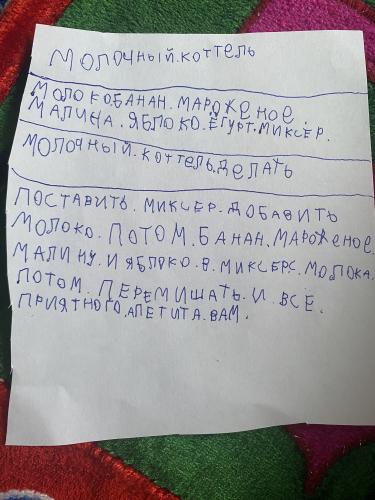 МОЛОЧНЫЙ.КОТТЕЛЬ
МОЛОКО.БАНАН.МАРОЖЕНОЕ.
МАЛИНА.ЯБЛОКО.ЁГУРТ.МИКСЕР.
МОЛОЧНЫЙ.КОТТЕЛЬ.ДЕЛАТЬ
ПОСТАВИТЬ.МИКСЕР.ДОБАВИТЬ
МОЛОКО.ПОТОМ.БАНАН.МАРОЖЕНОЕ.
МАЛИНУ.И ЯБЛОКО.В.МИКСЕРС.МОЛОКА.
ПОТОМ.ПЕРЕМИШАТЬ.И.ВСЁ.
ПРИЯТНОГО.АПЕТИТА.ВАМ.